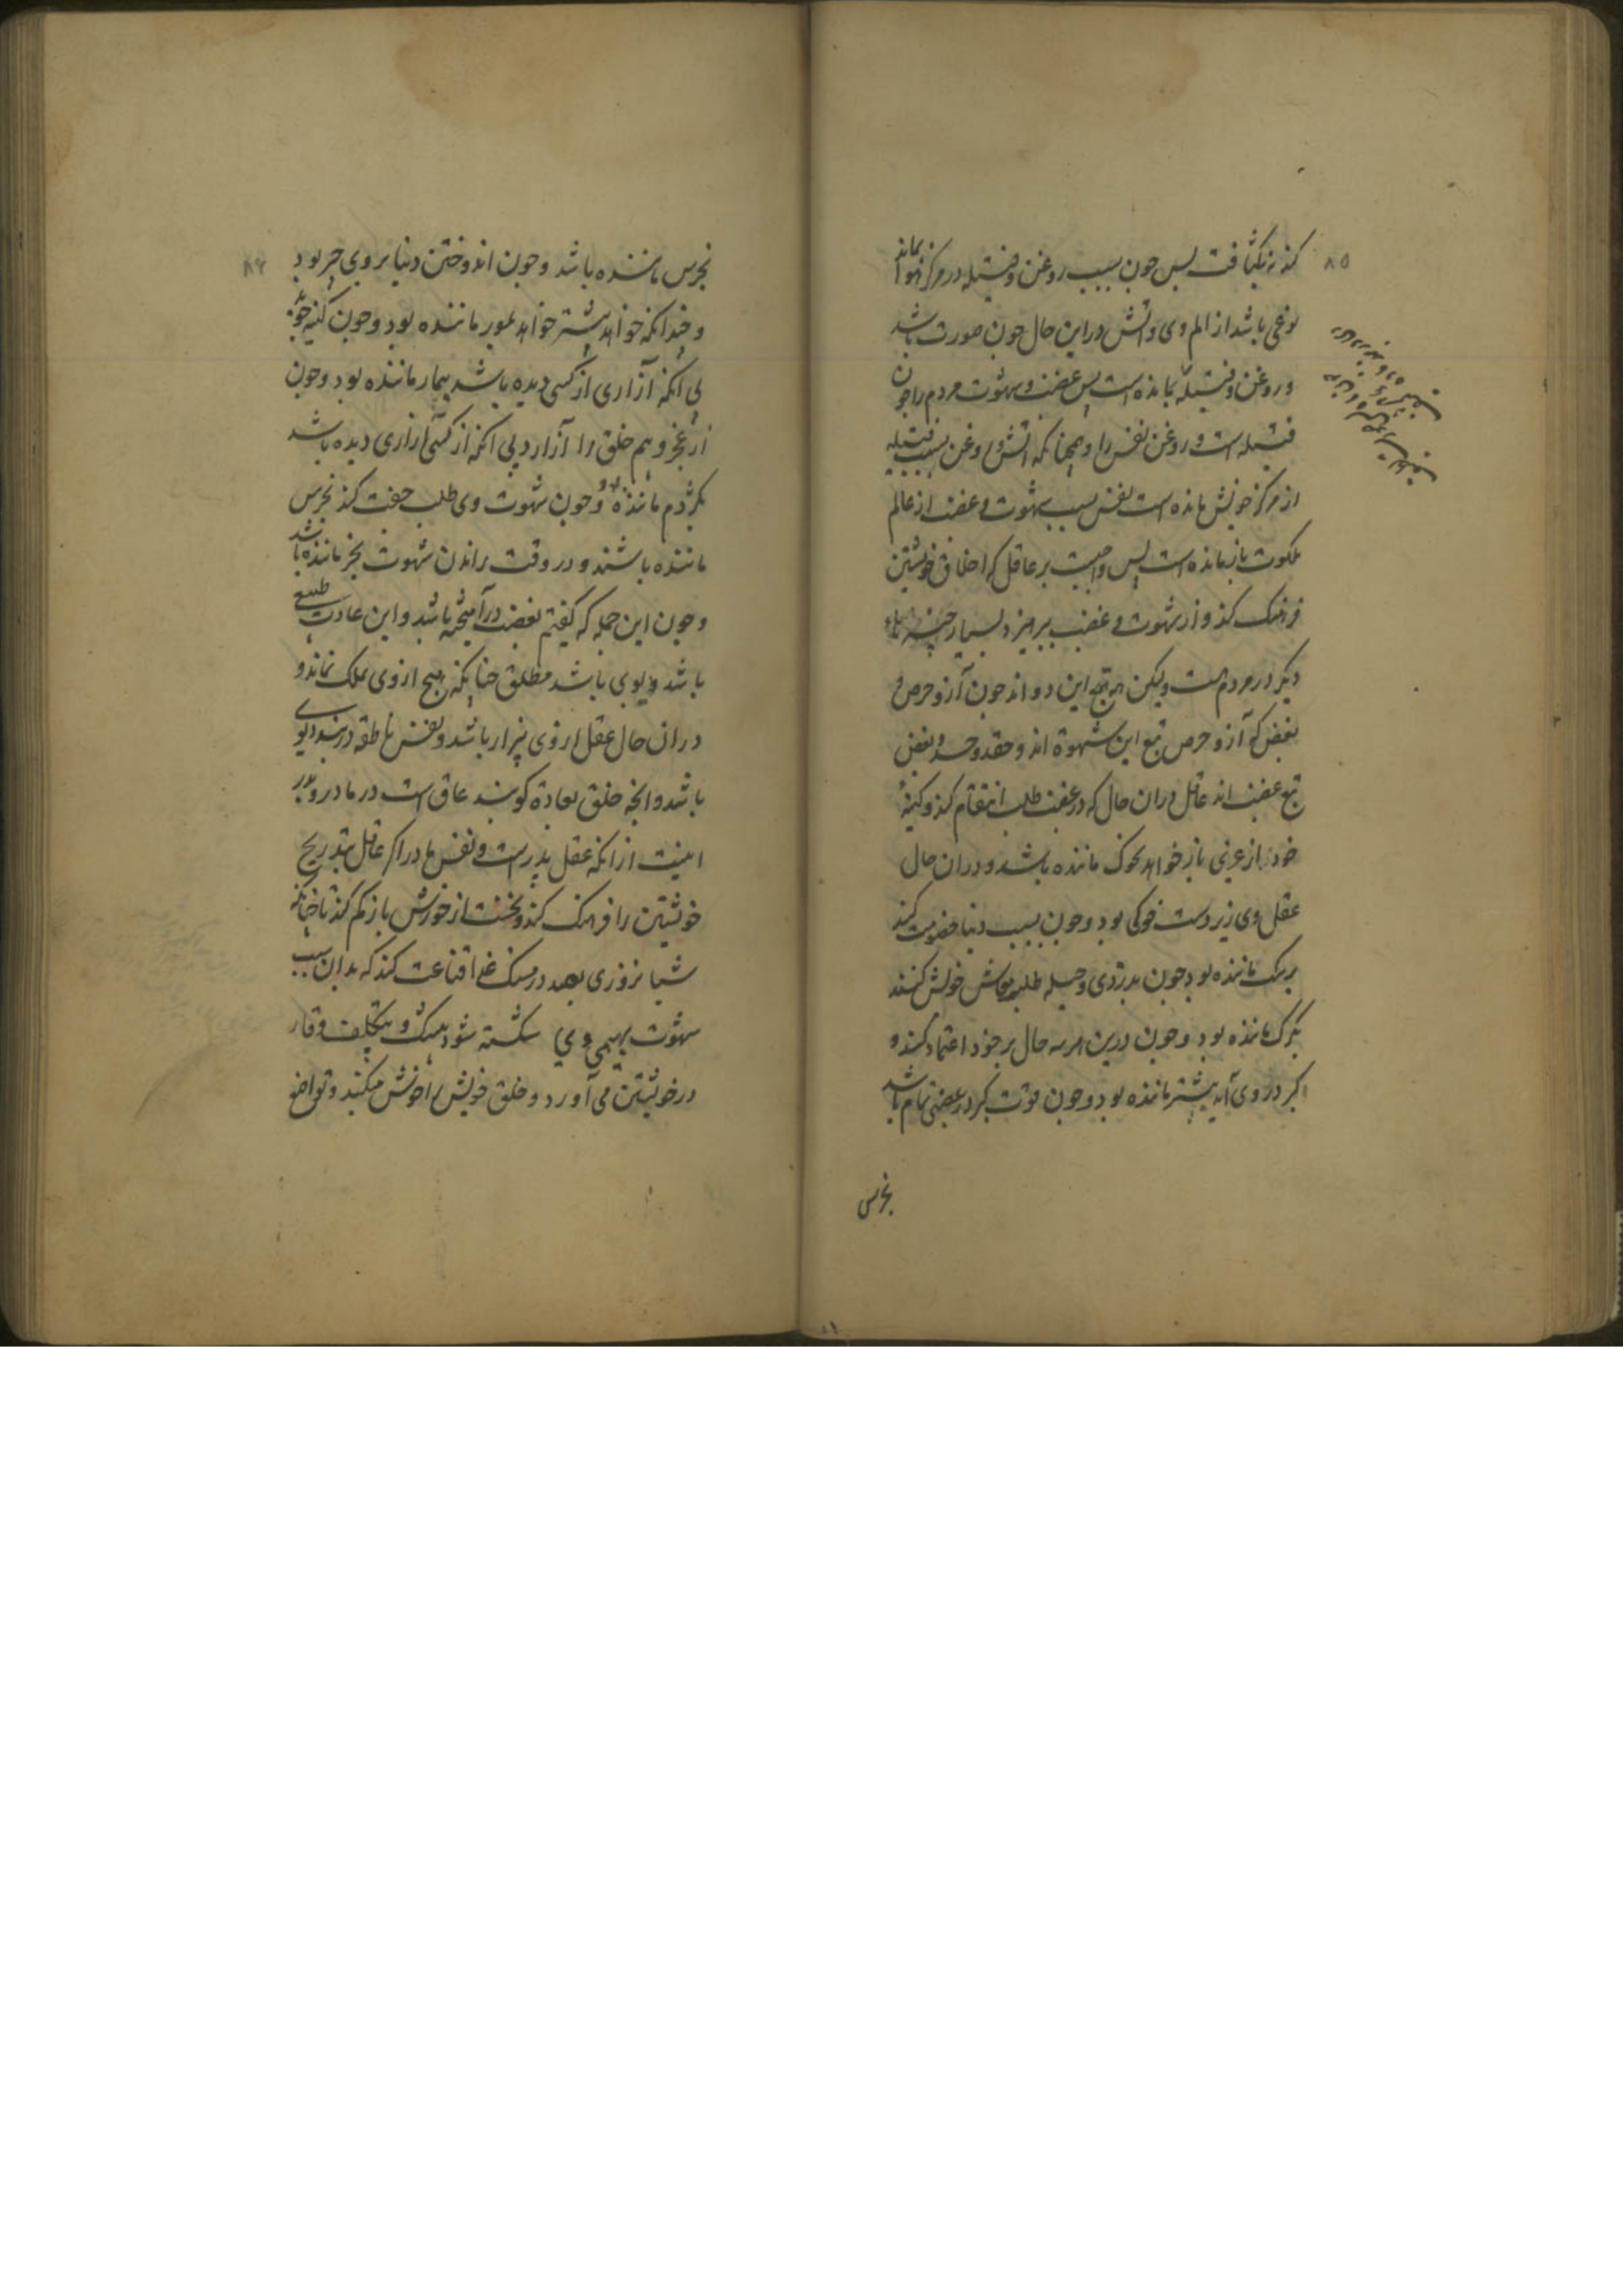 ۸۵
کند نه بکثافت پس چون بسبب روغن و فتیله در مرکز هوا بماند
نوعی باشد از الم وی و آتش در این حال چون صورت باشد
و روغن و فتیله بمانده است پس غضب و شهوت مردم را چون
فتیله است و روغن نفس را و همچنانکه آتش را روغن بسبب فتیله
از مرکز خویش مانده است نفس بسبب شهوت و غضب از عالم
ملکوت باز مانده است پس واجبست بر عاقل که اخلاق خویشتن
فرهنگ کند و از شهوت و غضب بپرهیزد بسیار چیز
دیگر در مردم هست ولیکن همه تبع این دو اند چون آز و حرص و
بغض که آز و حرص تبع این شهوة اند و حقد و حسد و بغض
تبع غضب اند عاقل در ان حال که در غضب طلب انتقام کند و کینهٔ
خود از عزی باز خواهد بخوک ماننده باشد و دران حال
عقل وی زیردست خوکی بود و چون بسبب دنیا خصومت کند
بسگ ماننده بود چون بدزدی و حیله طلب معاش خویش کند
بگرگ ماننده بود و چون درین هر سه حال بر خود اعتماد کند و
کبر در وی آید بشتر ماننده بود و چون قوت کبر در غضبی تمام باشد
بخرس
۸۶
بخرس ماننده باشد و چون اندوختن دنیا بر وی چیر بود
و چندانکه خواهد بیشتر خواهد بمور ماننده بود و چون کینه جوید
بی آنکه آزاری از کسی دیده باشد بمار ماننده بود و چون
از عجز و بیم خلق را آزارد بی آنکه از کسی آزاری دیده باشد
بکژدم ماننده بود و چون شهوت وی طلب جفت کند بخرس
ماننده باشند و در وقت راندن شهوت بخر ماننده باشد
و چون این جمله که گفتیم بغضب درآمیخته باشد و این عادت طبیعی
باشد دیوی باشد مطلق چنانکه هیچ از وی بملک نماند و
دران حال عقل از وی بیزار باشد و نفس ناطقه در بند دیوی
باشد و انچه خلق بعادة گویند عاق است در مادر و پدر
اینست از انکه عقل پدر است و نفس مادر اگر عاقل بتدریج
خویشتن را فرهنگ کند و نخست از خورش باز کم کند تا چنانکه
شبانروزی بصد درمسنگ غذا قناعت کند که بدان سبب
شهوت بهیمی وی شکسته شود بیشک و بتکلف وقار
در خویشتن می آورد و خلق خویش را خوش میکند و تواضع